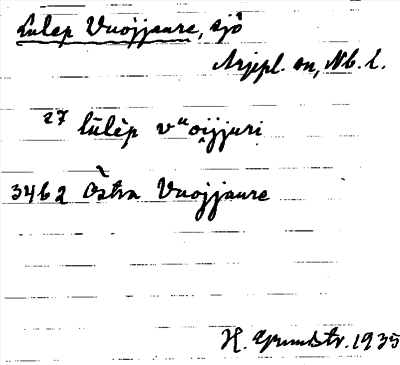 Lulep Vuojjaure, sjö
Arjepl. sn, Nb. l.
27 lulèp vᵘoi̯jjuri
3462 Östra Vuojjaure
H. Grundstr. 1935